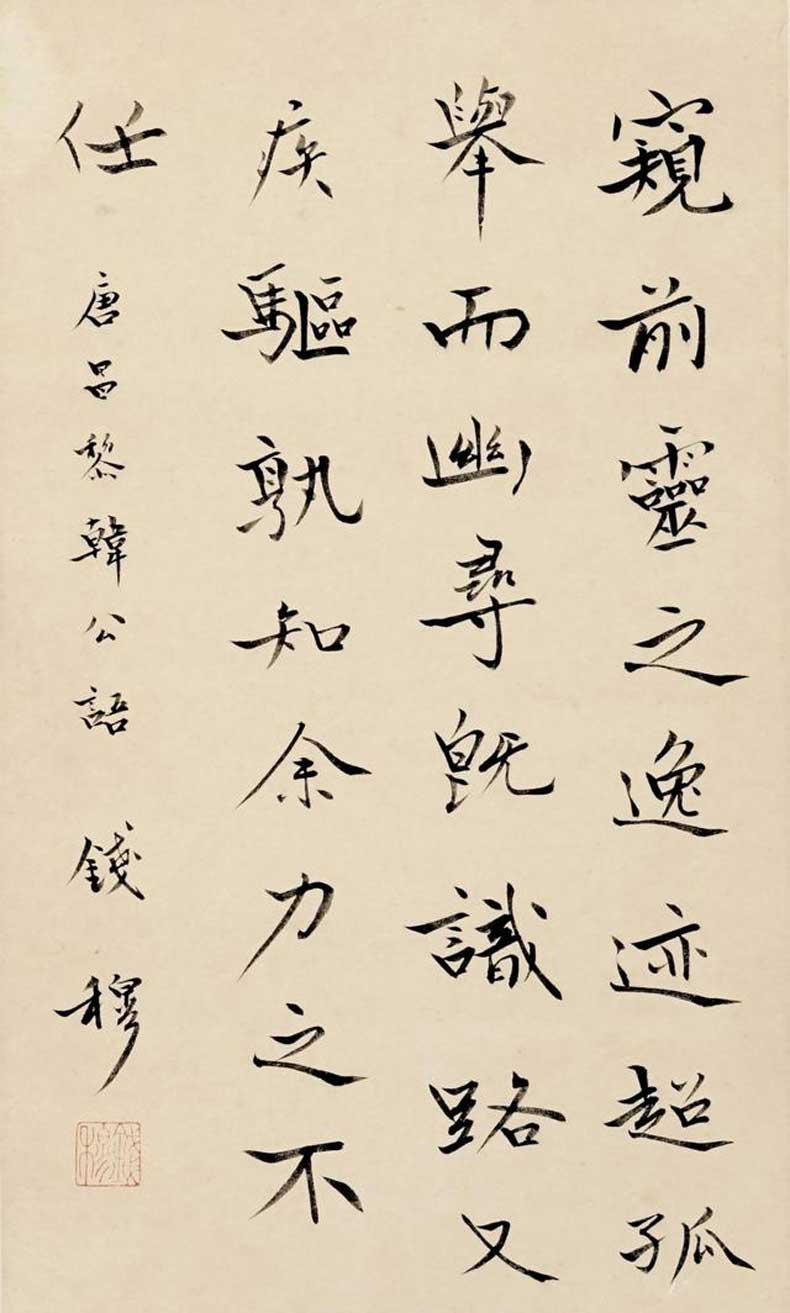 窺前靈之逸迹超孤
舉而幽尋既識路又
疾驅孰知余力之不
任 唐昌黎韓公語 錢穆
錢穆